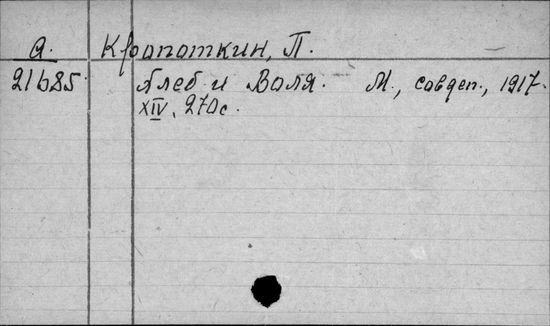 А. Кропоткин, П.
21685. Хлеб и Воля. М., совдеп., 1917.
XIV, 270с.